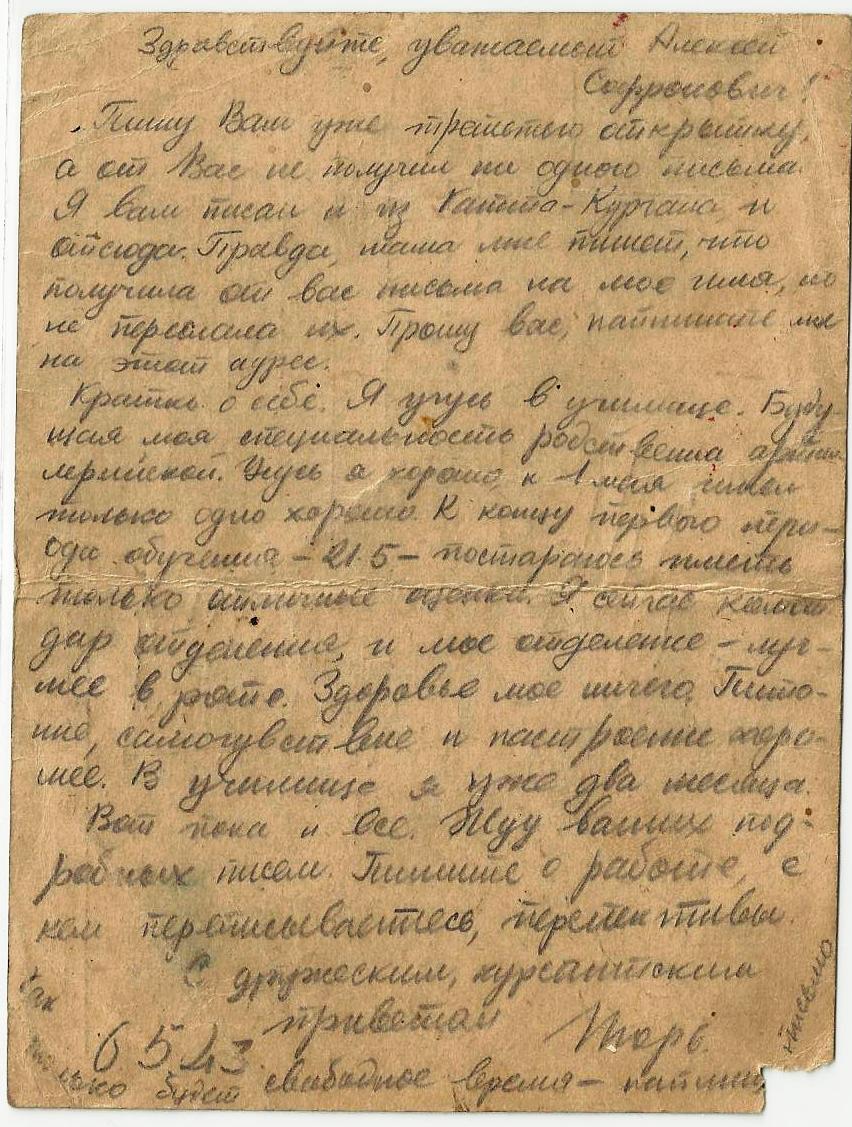 Здравствуйте, уважаемый Алексей
Софронович!
Пишу Вам уже третью открытку,
а от Вас не получил ни одного письма.
Я вам писал и из Катта-Кургана и
отсюда. Правда, мама мне пишет, что
получила от вас письма на мое имя, но
не переслала их. Прошу вас, напишите мне
на этот адрес.
Кратко о себе. Я учусь в училище. Буду-
щая моя специальность родственна артил
лерийской. Учусь я хорошо, к 1 мая имел
только одно хорошо. К концу первого пери-
ода обучения – 21.5 – постараюсь иметь
только отличные оценки. Я сейчас коман
дир отделения, и мое отделение – луч-
шее в роте. Здоровье мое ничего. Пита-
ние, самочувствие и настроение хоро-
шее. В училище я уже два месяца.
Вот пока и все. Жду ваших под-
робных писем. Пишите о работе, с
кем переписываетесь, перспективы.
С дружеским, курсантским
приветом Игорь.
6 5 43
Как
только будет свободное время – напишу
письмо